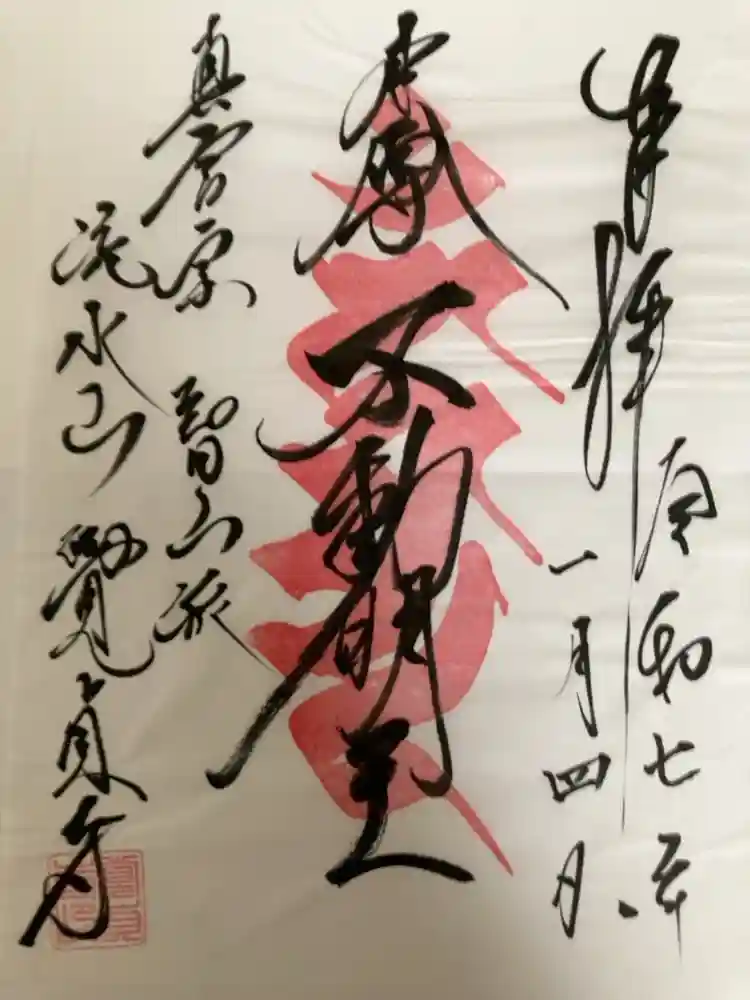 奉拝
令和七年
一月四日
本尊 不動明王
真言宗 智山派
滝水山 覺貞寺